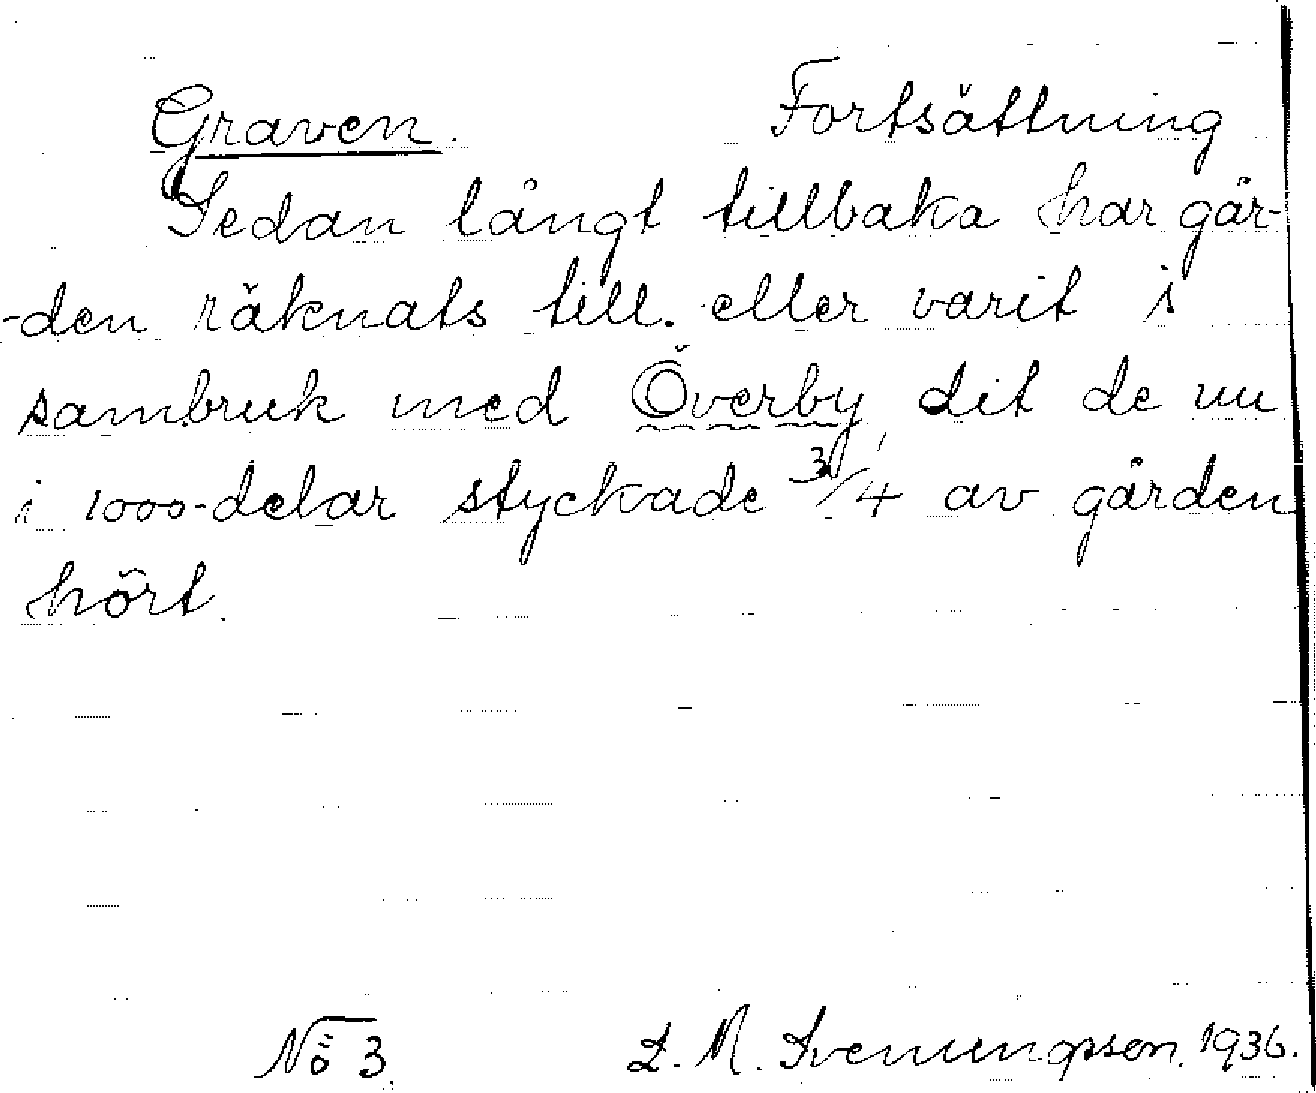 Graven. Fortsättning
Sedan långt tillbaka har går-
-den räknats till. eller varit i
sambruk med Överby, dit de nu
i 1000-delar styckade 3/4 av gården
hört.
No 3. L. M. Svenungsson. 1936.